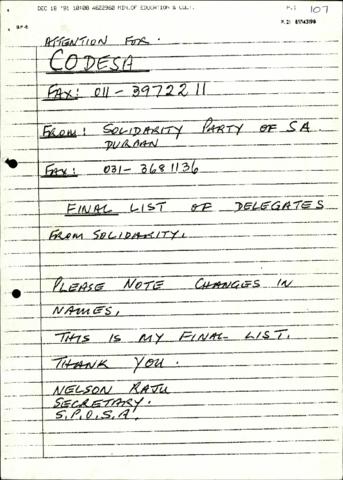 DEC 18 '91 10:08 4622960 MIN.OF EDUCATION & CULT. P.1 107
ATTENTION FOR.
CODESA
FAX: 011 - 3972211
FROM: SOLIDARITY PARTY OF SA
DURBAN
FAX: 031- 3681136
FINAL LIST OF DELEGATES
FROM SOLIDARITY.
PLEASE NOTE CHANGES IN
NAMES.
THIS IS MY FINAL LIST.
THANK YOU.
NELSON RAJU
SECRETARY.
S.P.O.S.A.